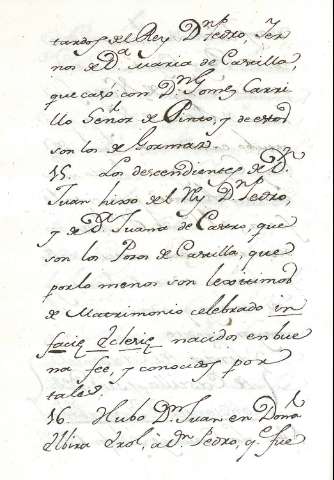 tardos del Rey Dⁿ Pedro, Fer
nos de Dª Maria de Castilla,
que casó con Dⁿ Gomes Carri
llo Señor de Pinto, y de estos
son los de Gormaz.
15. Los descendientes de Dⁿ
Juan hixo del Rey Dⁿ Pedro,
y de Dª Juana de Castro, que
son los Posos de Castilla, que
por lo menos son lexitimos
de Matrimonio celebrado in
facie Eclesie nacidos en bue
na fee, y conocidos por
tales.
16. Hubo Dⁿ Juan en Doña
Elbira Erol, à dⁿ Pedro, qᵉ fue